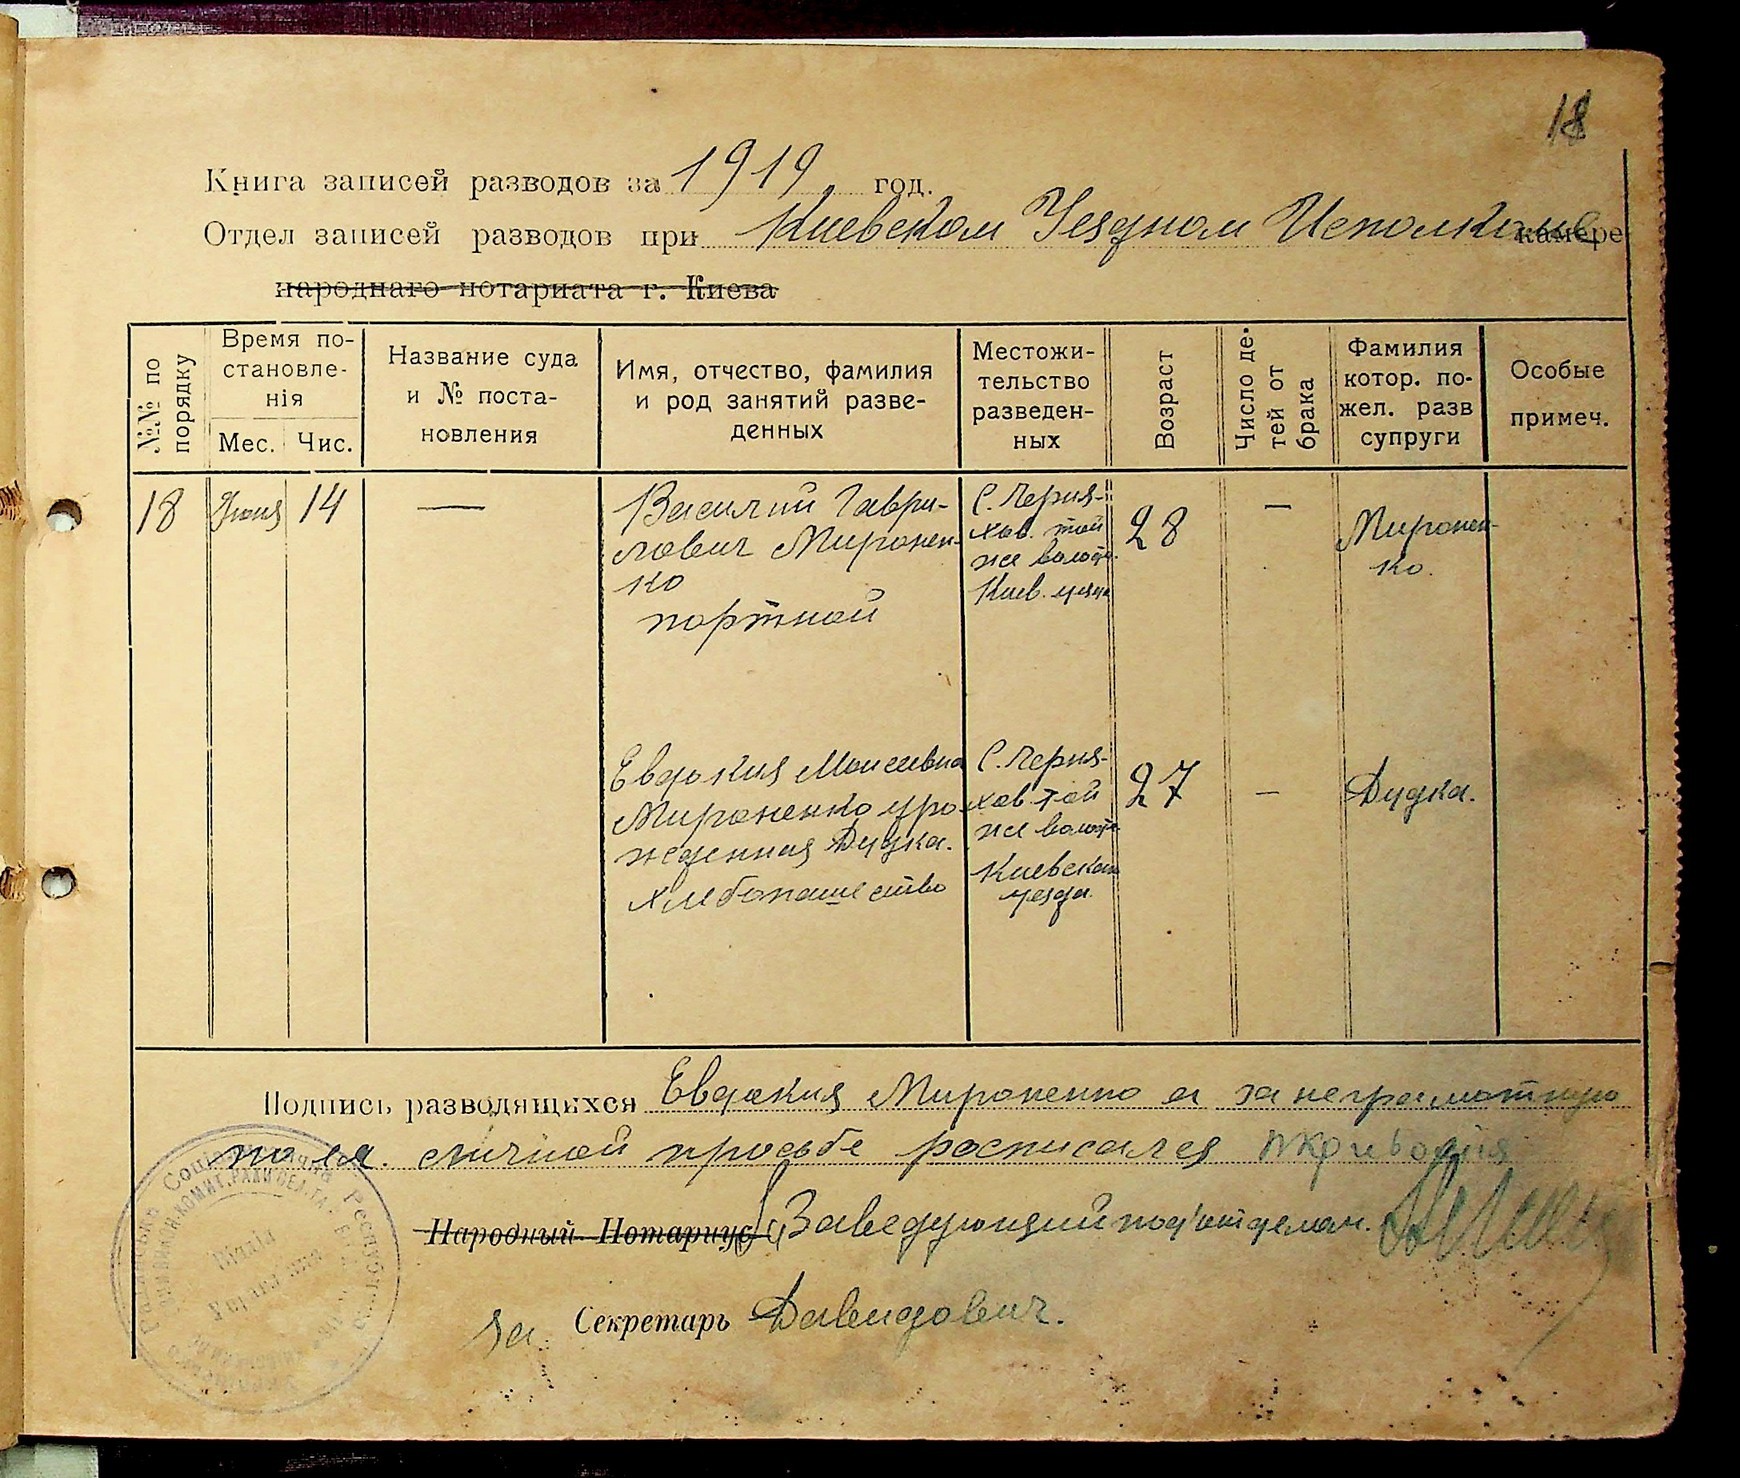 18
Книга записей разводов за 1919 год.
Отдел записей разводов при Киевском Уездном Исполкоме камере
народнаго нотариата г. Киева
№№ по порядку
Время по-
становле-
нія
Мес. Чис.
Название суда
и № поста-
новления
Имя, отчество, фамилия
и род занятий разве-
денных
Местожи-
тельство
разведен-
ных
Возраст
Число де-
тей от
брака
Фамилия
котор. по-
жел. разв
супруги
Особые
примеч.
18 Июня 14 —
Василий Гаври-
лович Миронен-
ко
портной
С. Черня-
хов. той
же волост.
Киев. уезда
28
—
Миронен-
ко.
Евдокия Моисеевна
Мироненко уро-
жденная Дудка.
хлебопашество
С. Черня-
хов той
же волости
Киевскаго
уезда
27
—
Дудка.
Подпись разводящихся Евдокия Мироненко а за неграмотную
по ея личной просьбе росписался
Народный Нотариус Заведующий под'отделом.
За Секретарь Давидович.